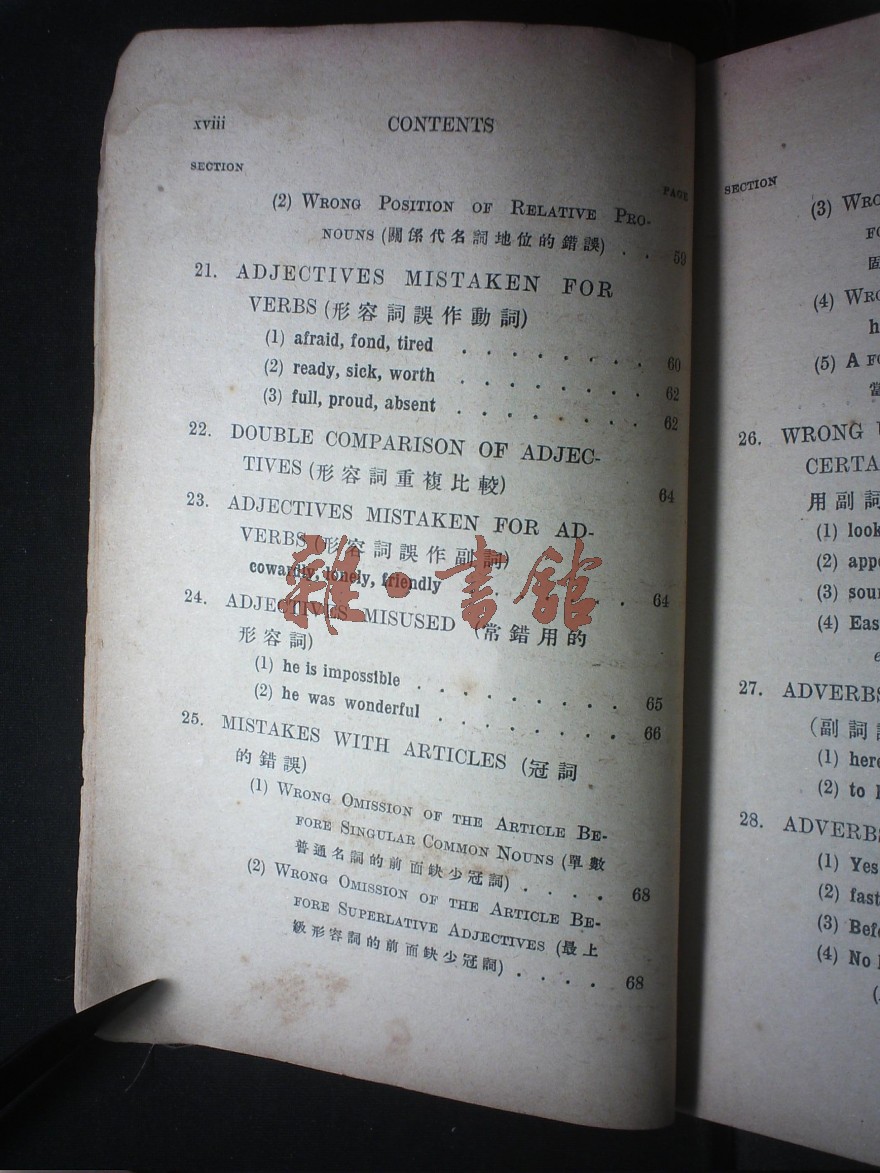 xviii CONTENTS
SECTION PAGE
(2) WRONG POSITION OF RELATIVE PRO-
NOUNS (關係代名詞地位的錯誤) . . 59
21. ADJECTIVES MISTAKEN FOR
VERBS (形容詞誤作動詞)
(1) afraid, fond, tired . . . . . . . 60
(2) ready, sick, worth . . . . . . . 62
(3) full, proud, absent . . . . . . . 62
22. DOUBLE COMPARISON OF ADJEC-
TIVES (形容詞重複比較) 64
23. ADJECTIVES MISTAKEN FOR AD-
VERBS (形容詞誤作副詞)
cowardly, lonely, friendly . . . . 64
24. ADJECTIVES MISUSED (常錯用的
形容詞)
(1) he is impossible . . . . . . . . 65
(2) he was wonderful . . . . . . . 66
25. MISTAKES WITH ARTICLES (冠詞
的錯誤)
(1) WRONG OMISSION OF THE ARTICLE BE-
FORE SINGULAR COMMON NOUNS (單數
普通名詞的前面缺少冠詞) . . . . 68
(2) WRONG OMISSION OF THE ARTICLE BE-
FORE SUPERLATIVE ADJECTIVES (最上
級形容詞的前面缺少冠詞) . . . . 68
雜·書館
SECTION
(3)
(4)
(5) A
26. WRONG
用副詞
(1) look
(2)
(3)
(4)
27. ADVERBS
(副詞
(1) here
(2) to
28. ADVERBS
(1) Yes
(2) fast
(3)
(4) No